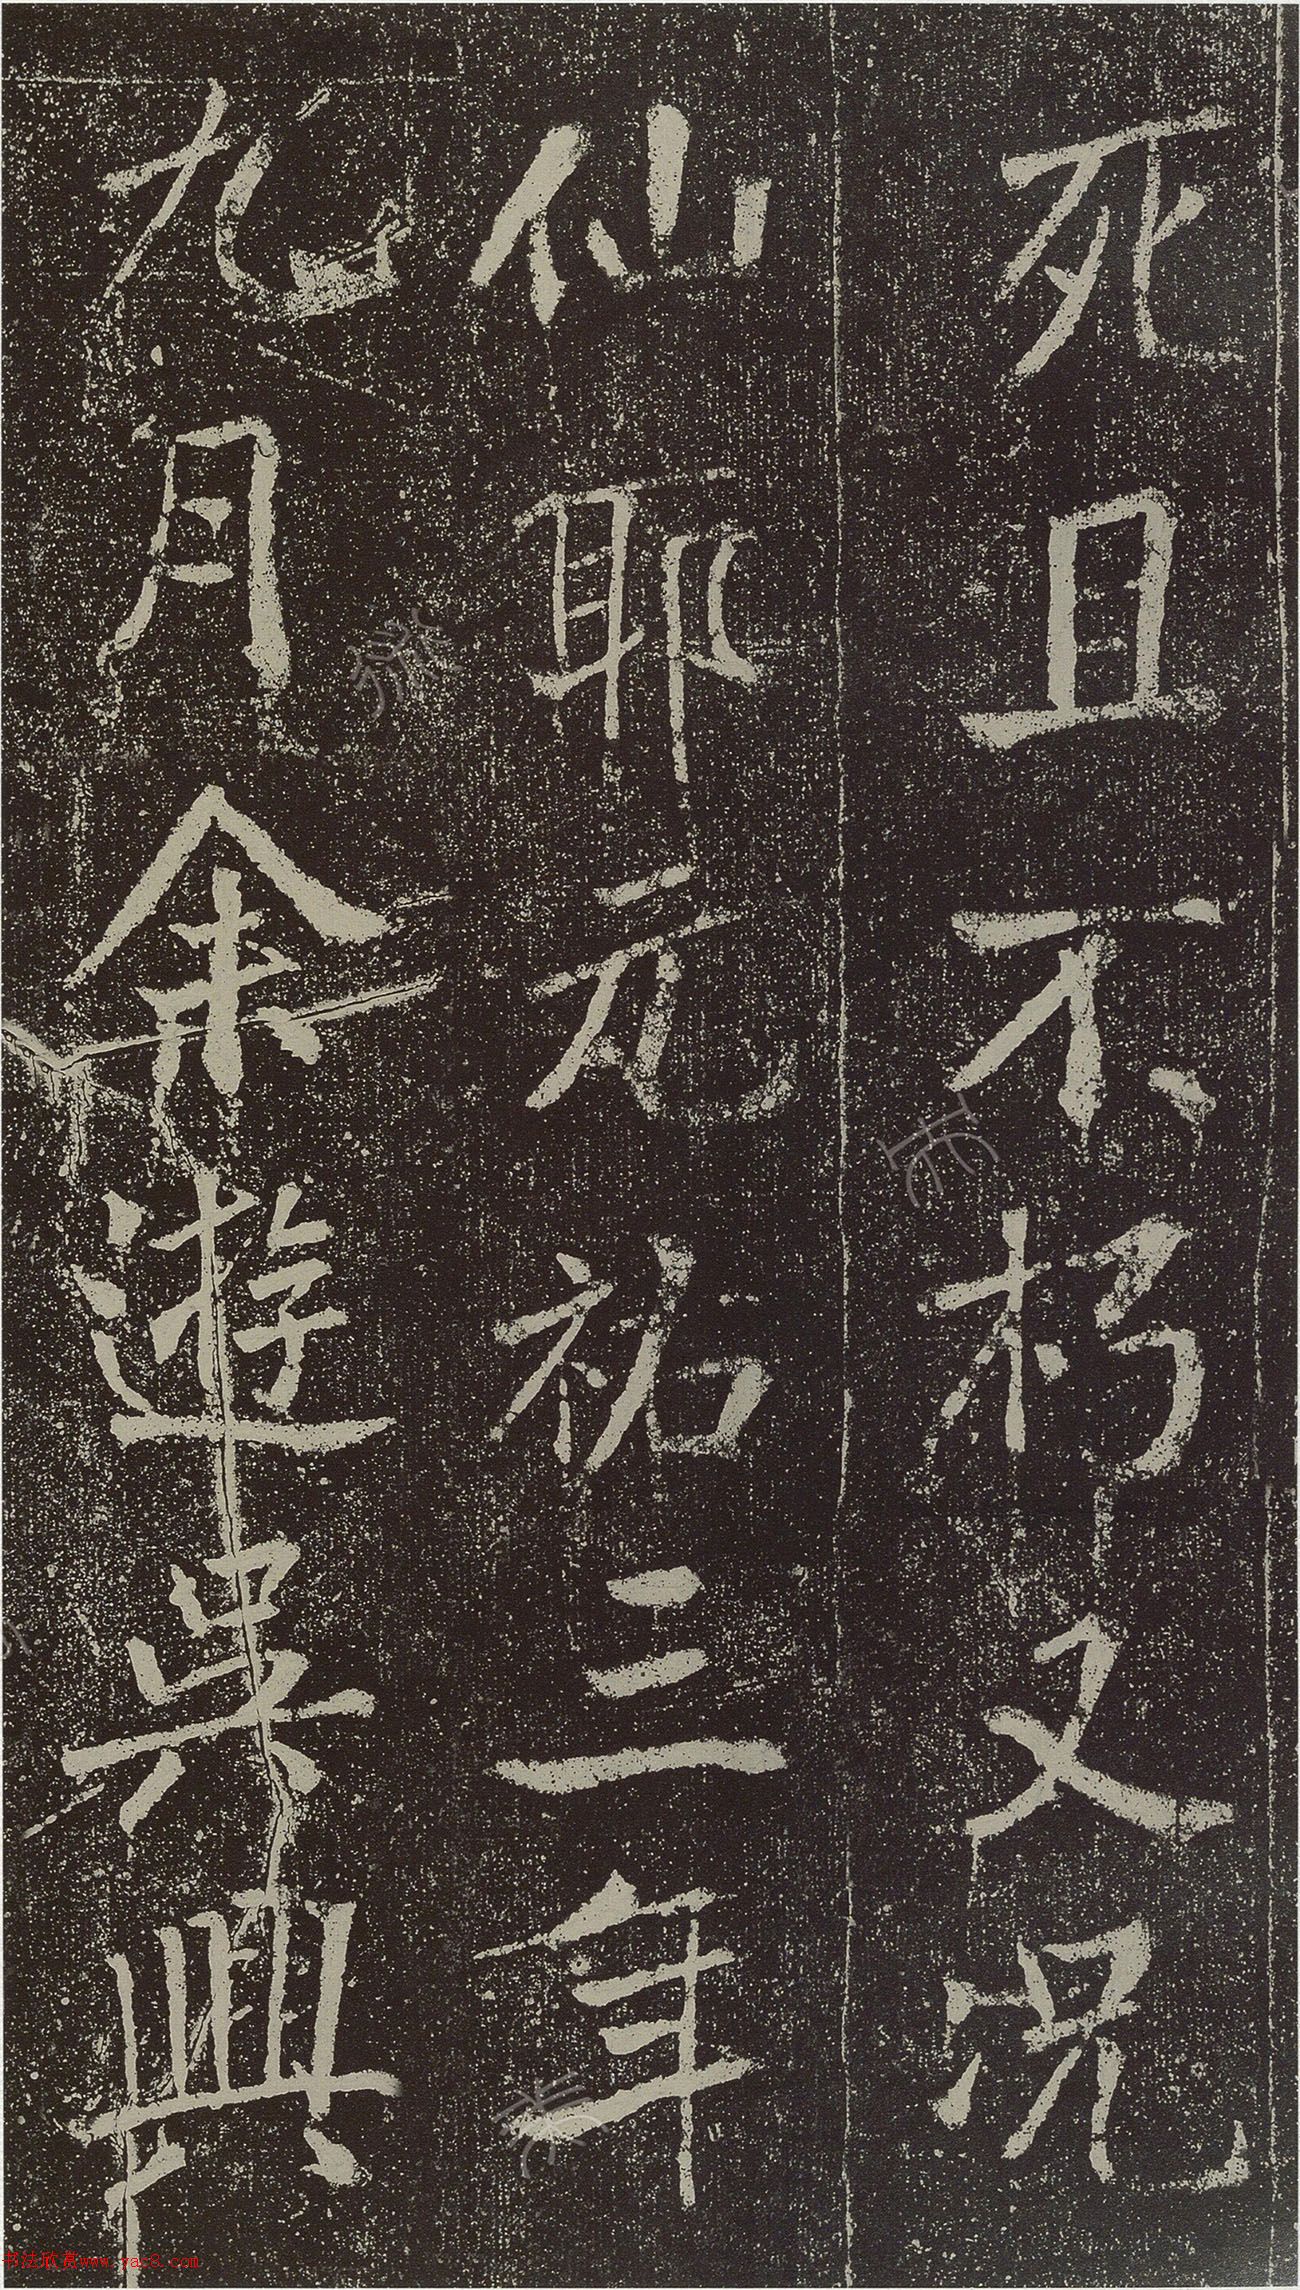 死且不朽又況
仙耶元祐三年
九月余遊吳興
书法欣赏www.yac8.com